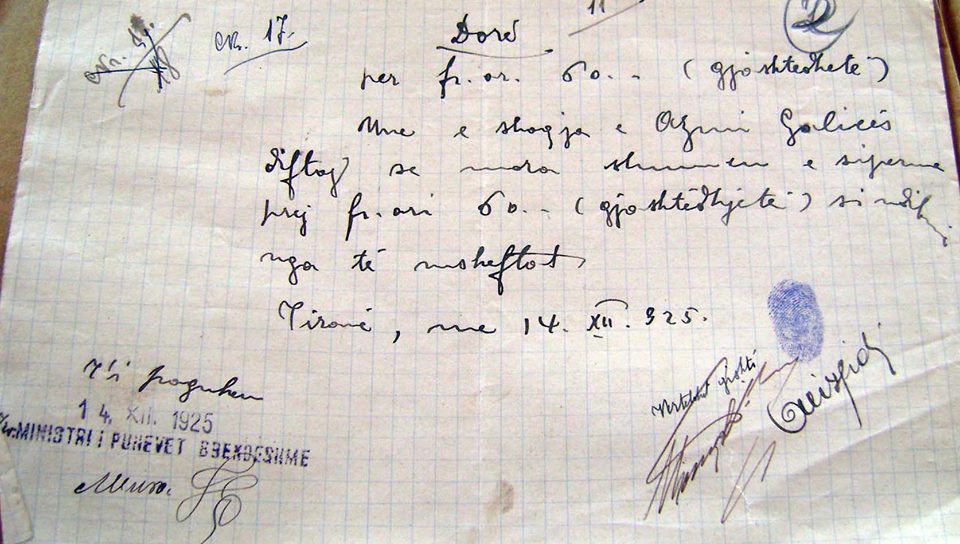 Nr. 17.
11
Dorë
2
per fr. ar. 60.-- (gjashtëdhetë)
Une e shoqja e Azmi Galicës
diftoj se mora shumen e siperme
prej fr. ari 60.-- (gjashtëdhjetë) si ndihmë
nga të msheftat
Tiranë, me 14. XII. 925.
T'i paguhen
14. XII. 1925
MINISTRI I PUNEVET BRENDESHME